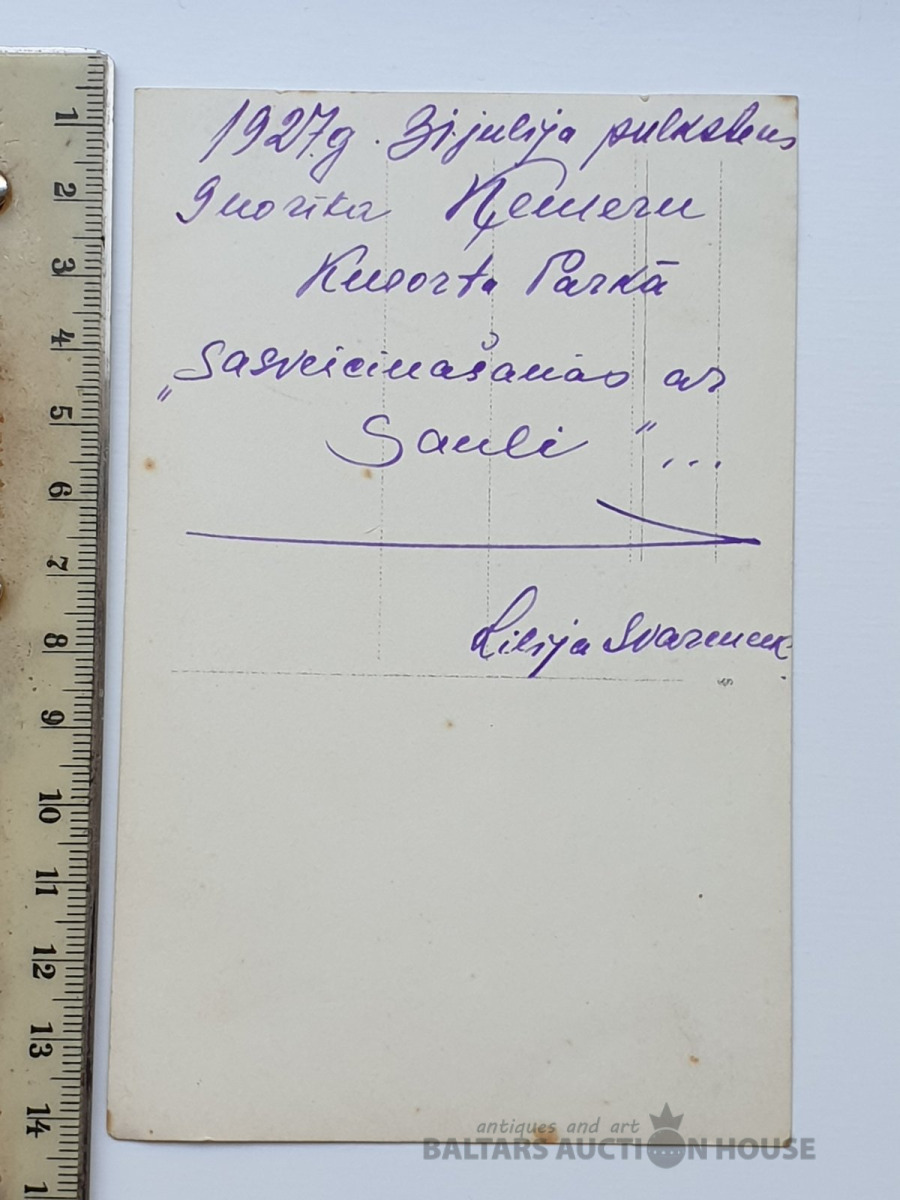 1927.g. 31.julija pulkstens
9 no rīta Ķemeru
Kurorta Parkā
„Sasveicinašanas ar
Sauli"...
Lilija
1
2
3
4
5
6
7
8
9
10
11
12
13
14
antiques and art
BALTARS AUCTION HOUSE